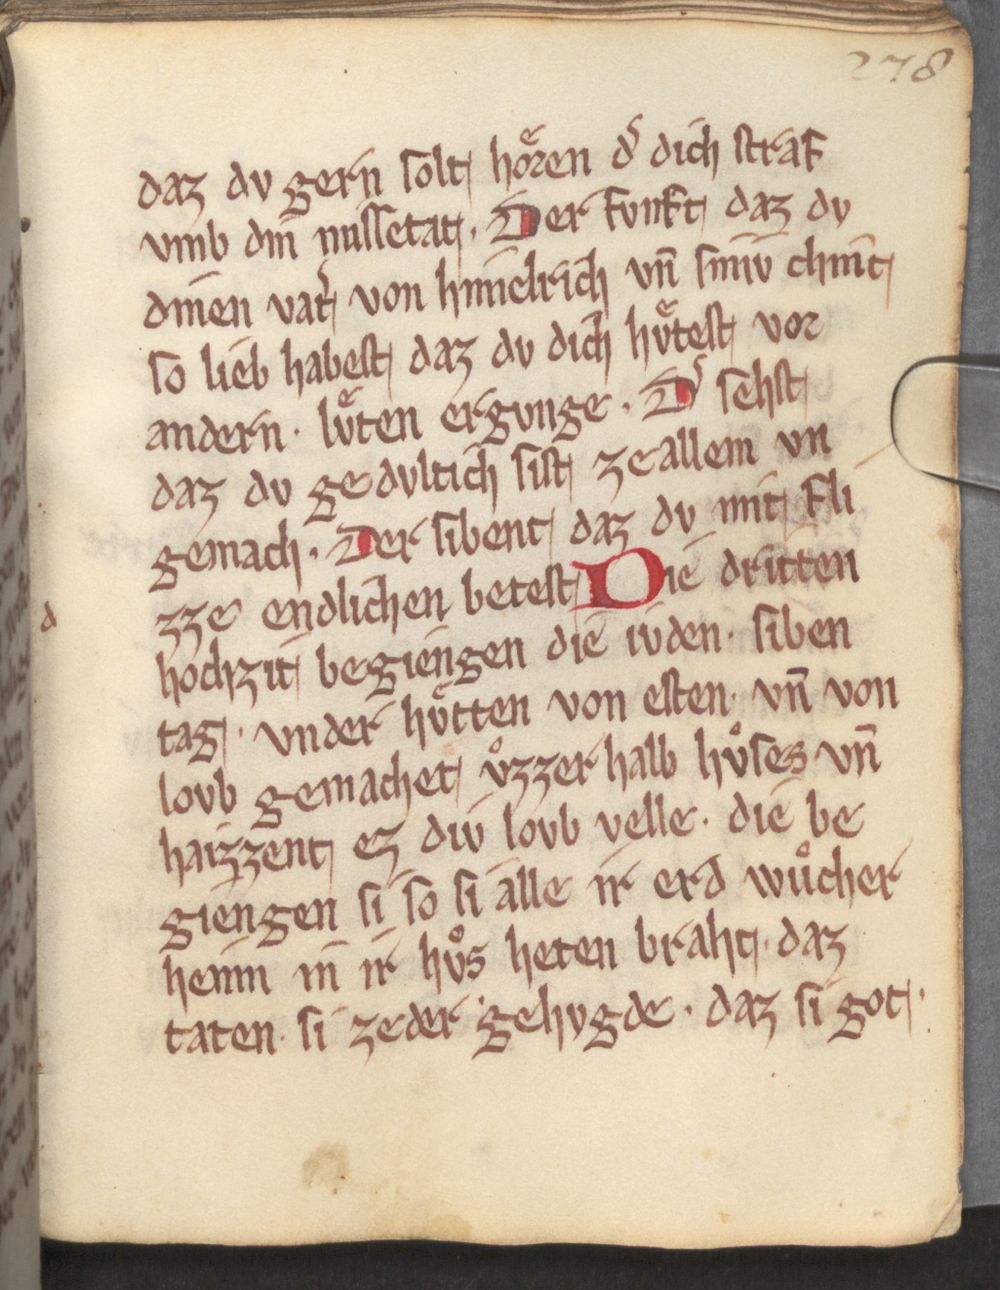 278
daz dv gern solt hoͤren dˢ dich straf
vmb din missetat. Der fvnft daz dv
dinen vatˢ von himelrich vn̄ siniv chint
so lieb habest daz dv dich hvͤtest vor
andern. lvͤten ergvnge. Dˢ sehst
daz dv gedvltich sist ze allem vn
gemach. Der sibent daz dv mit fli
zze endlichen betest Die dritten
hochzit begiengen die ivden. siben
tag. vnder hvͤtten von esten. vn̄ von
lovb gemachet vͦzzer halb hvͦses vn̄
haizzent ez div lovb velle. die be
giengen si so si alle ir erd wuͦcher
heim in ir hvͦs heten braht. daz
taten. si ze der gehvgde. daz si got.
d